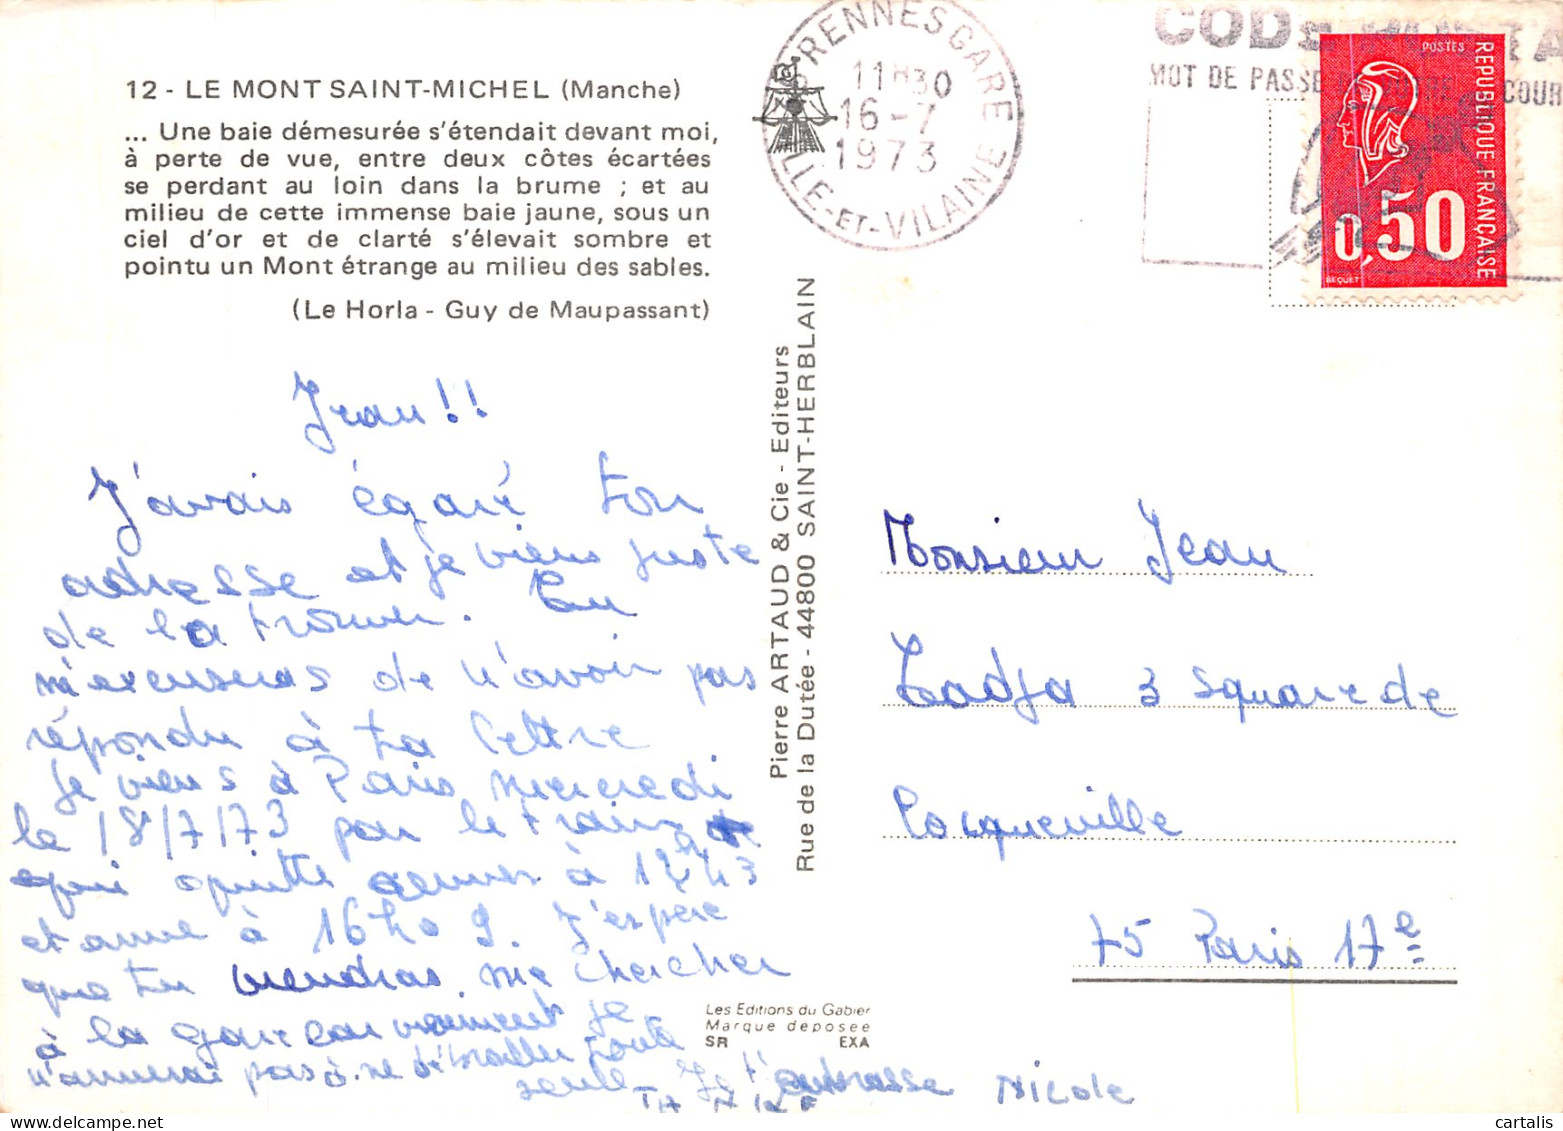 12 - LE MONT SAINT-MICHEL (Manche)
... Une baie démesurée s'étendait devant moi,
à perte de vue, entre deux côtes écartées
se perdant au loin dans la brume ; et au
milieu de cette immense baie jaune, sous un
ciel d'or et de clarté s'élevait sombre et
pointu un Mont étrange au milieu des sables.
(Le Horla - Guy de Maupassant)
Jean!!
J'avais égaré ton
adresse et je viens juste
de la trouver. Tu
m'excuseras de n'avoir pas
répondu à ta lettre
Je viens à Paris mercredi
le 18/7/73 par le train
qui quitte Rennes à 12h43
et arrive à 16h09. J'espère
que tu viendras me chercher
à la gare car vraiment je
n'arriverai pas à me débrouiller toute
seule Je t'embrasse Nicole
Pierre ARTAUD & Cie - Editeurs
Rue de la Dutée - 44800 SAINT-HERBLAIN
Les Editions du Gabier
Marque déposée
SR EXA
RENNES GARE
11H30
16-7
1973
ILLE-ET-VILAINE
CODE
MOT DE PASSE COUR
POSTES
REPUBLIQUE FRANÇAISE
0,50
BEQUET
Monsieur Jean
Zadja 3 square de
Cocqueville
75 Paris 17e
cartalis